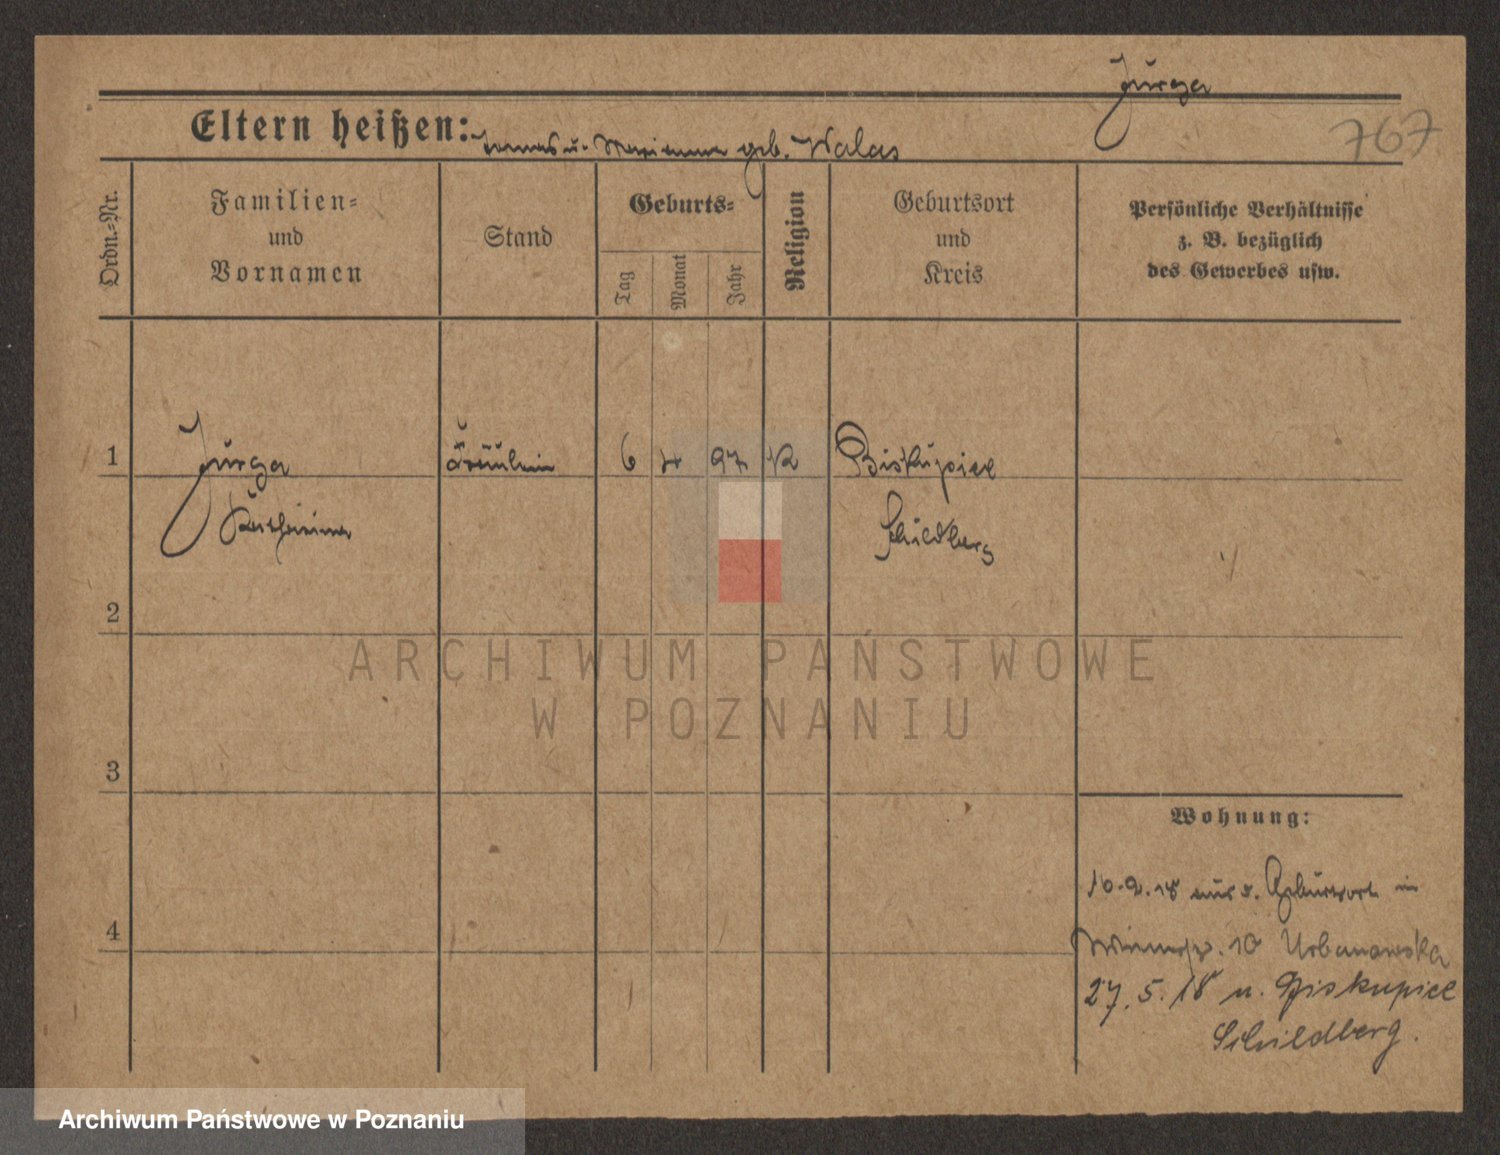 Jurga
767
Eltern heißen: Tomas u. Marianna geb. Walas
Ordn.-Nr.
Familien-
und
Vornamen
Stand
Geburts-
Tag
Monat
Jahr
Religion
Geburtsort
und
Kreis
Persönliche Verhältnisse
z. B. bezüglich
des Gewerbes usw.
1
Jurga
Katharina
Fräulein
6
97
K
Biskupice
Schildberg
2
3
4
Wohnung:
10.2.18 aus d. Geburtsort in
10 Urbanowska
27.5.18 n. Biskupice
Schildberg.
ARCHIWUM PAŃSTWOWE
W POZNANIU
Archiwum Państwowe w Poznaniu